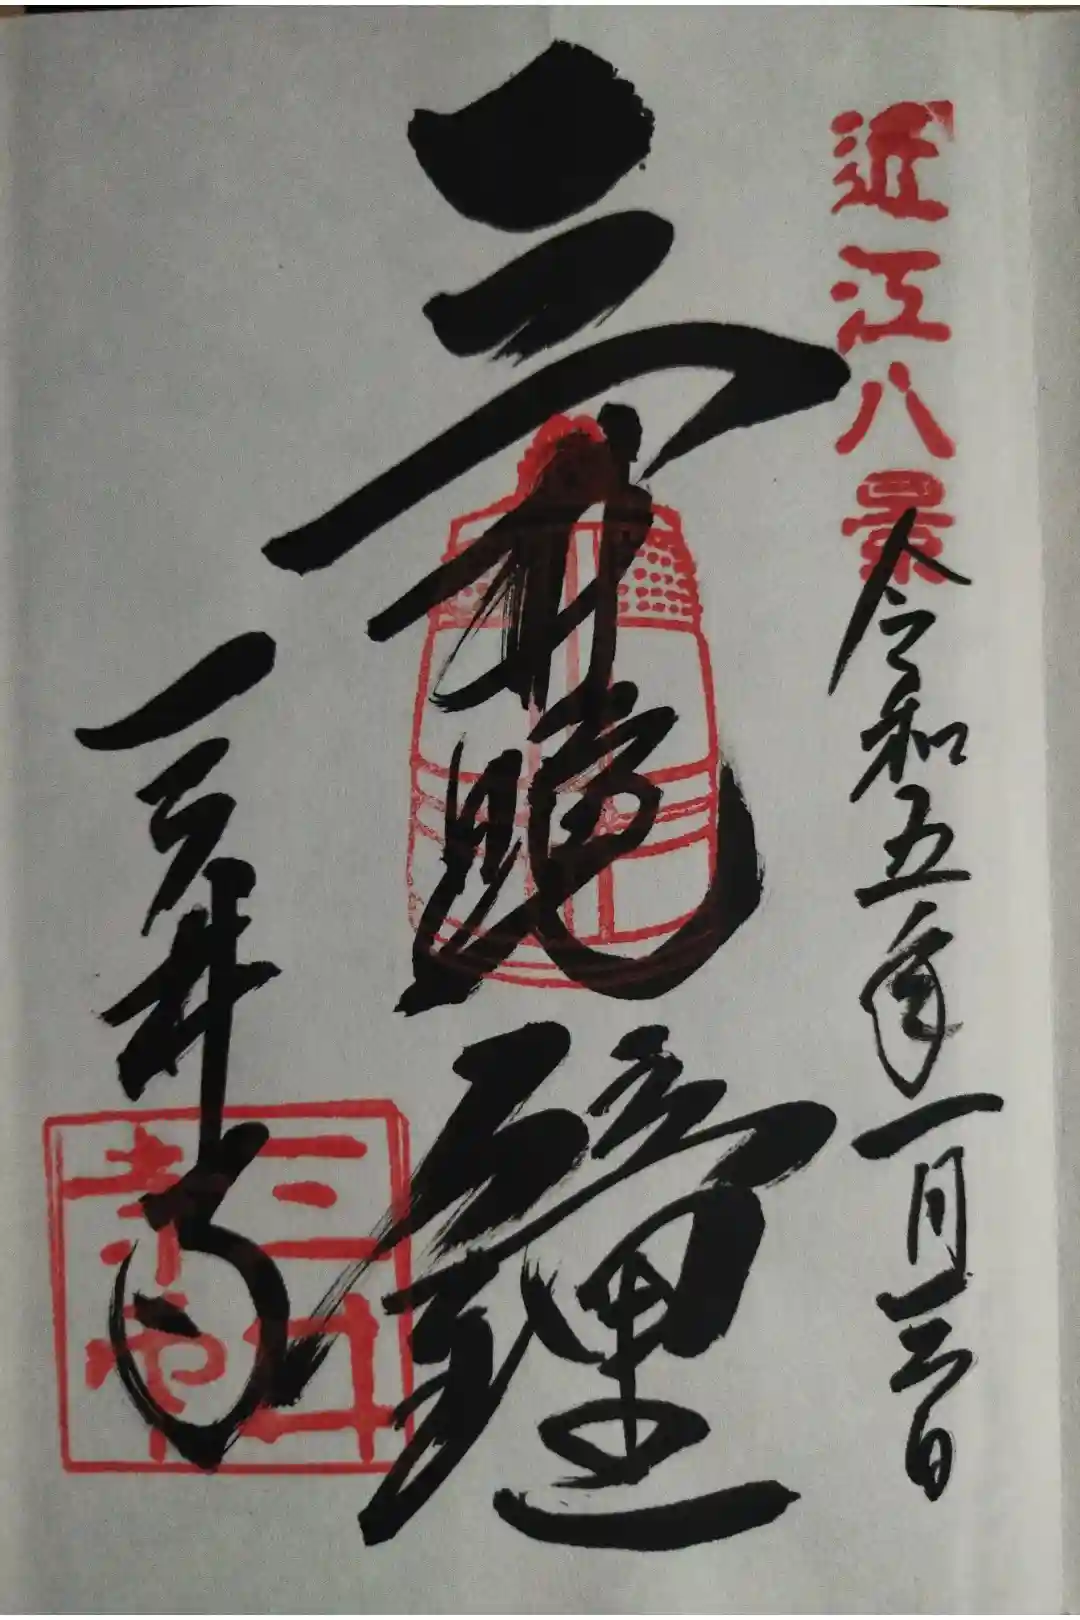 近江八景
令和五年一月三日
三井晩鐘
三井寺
三井
寺印